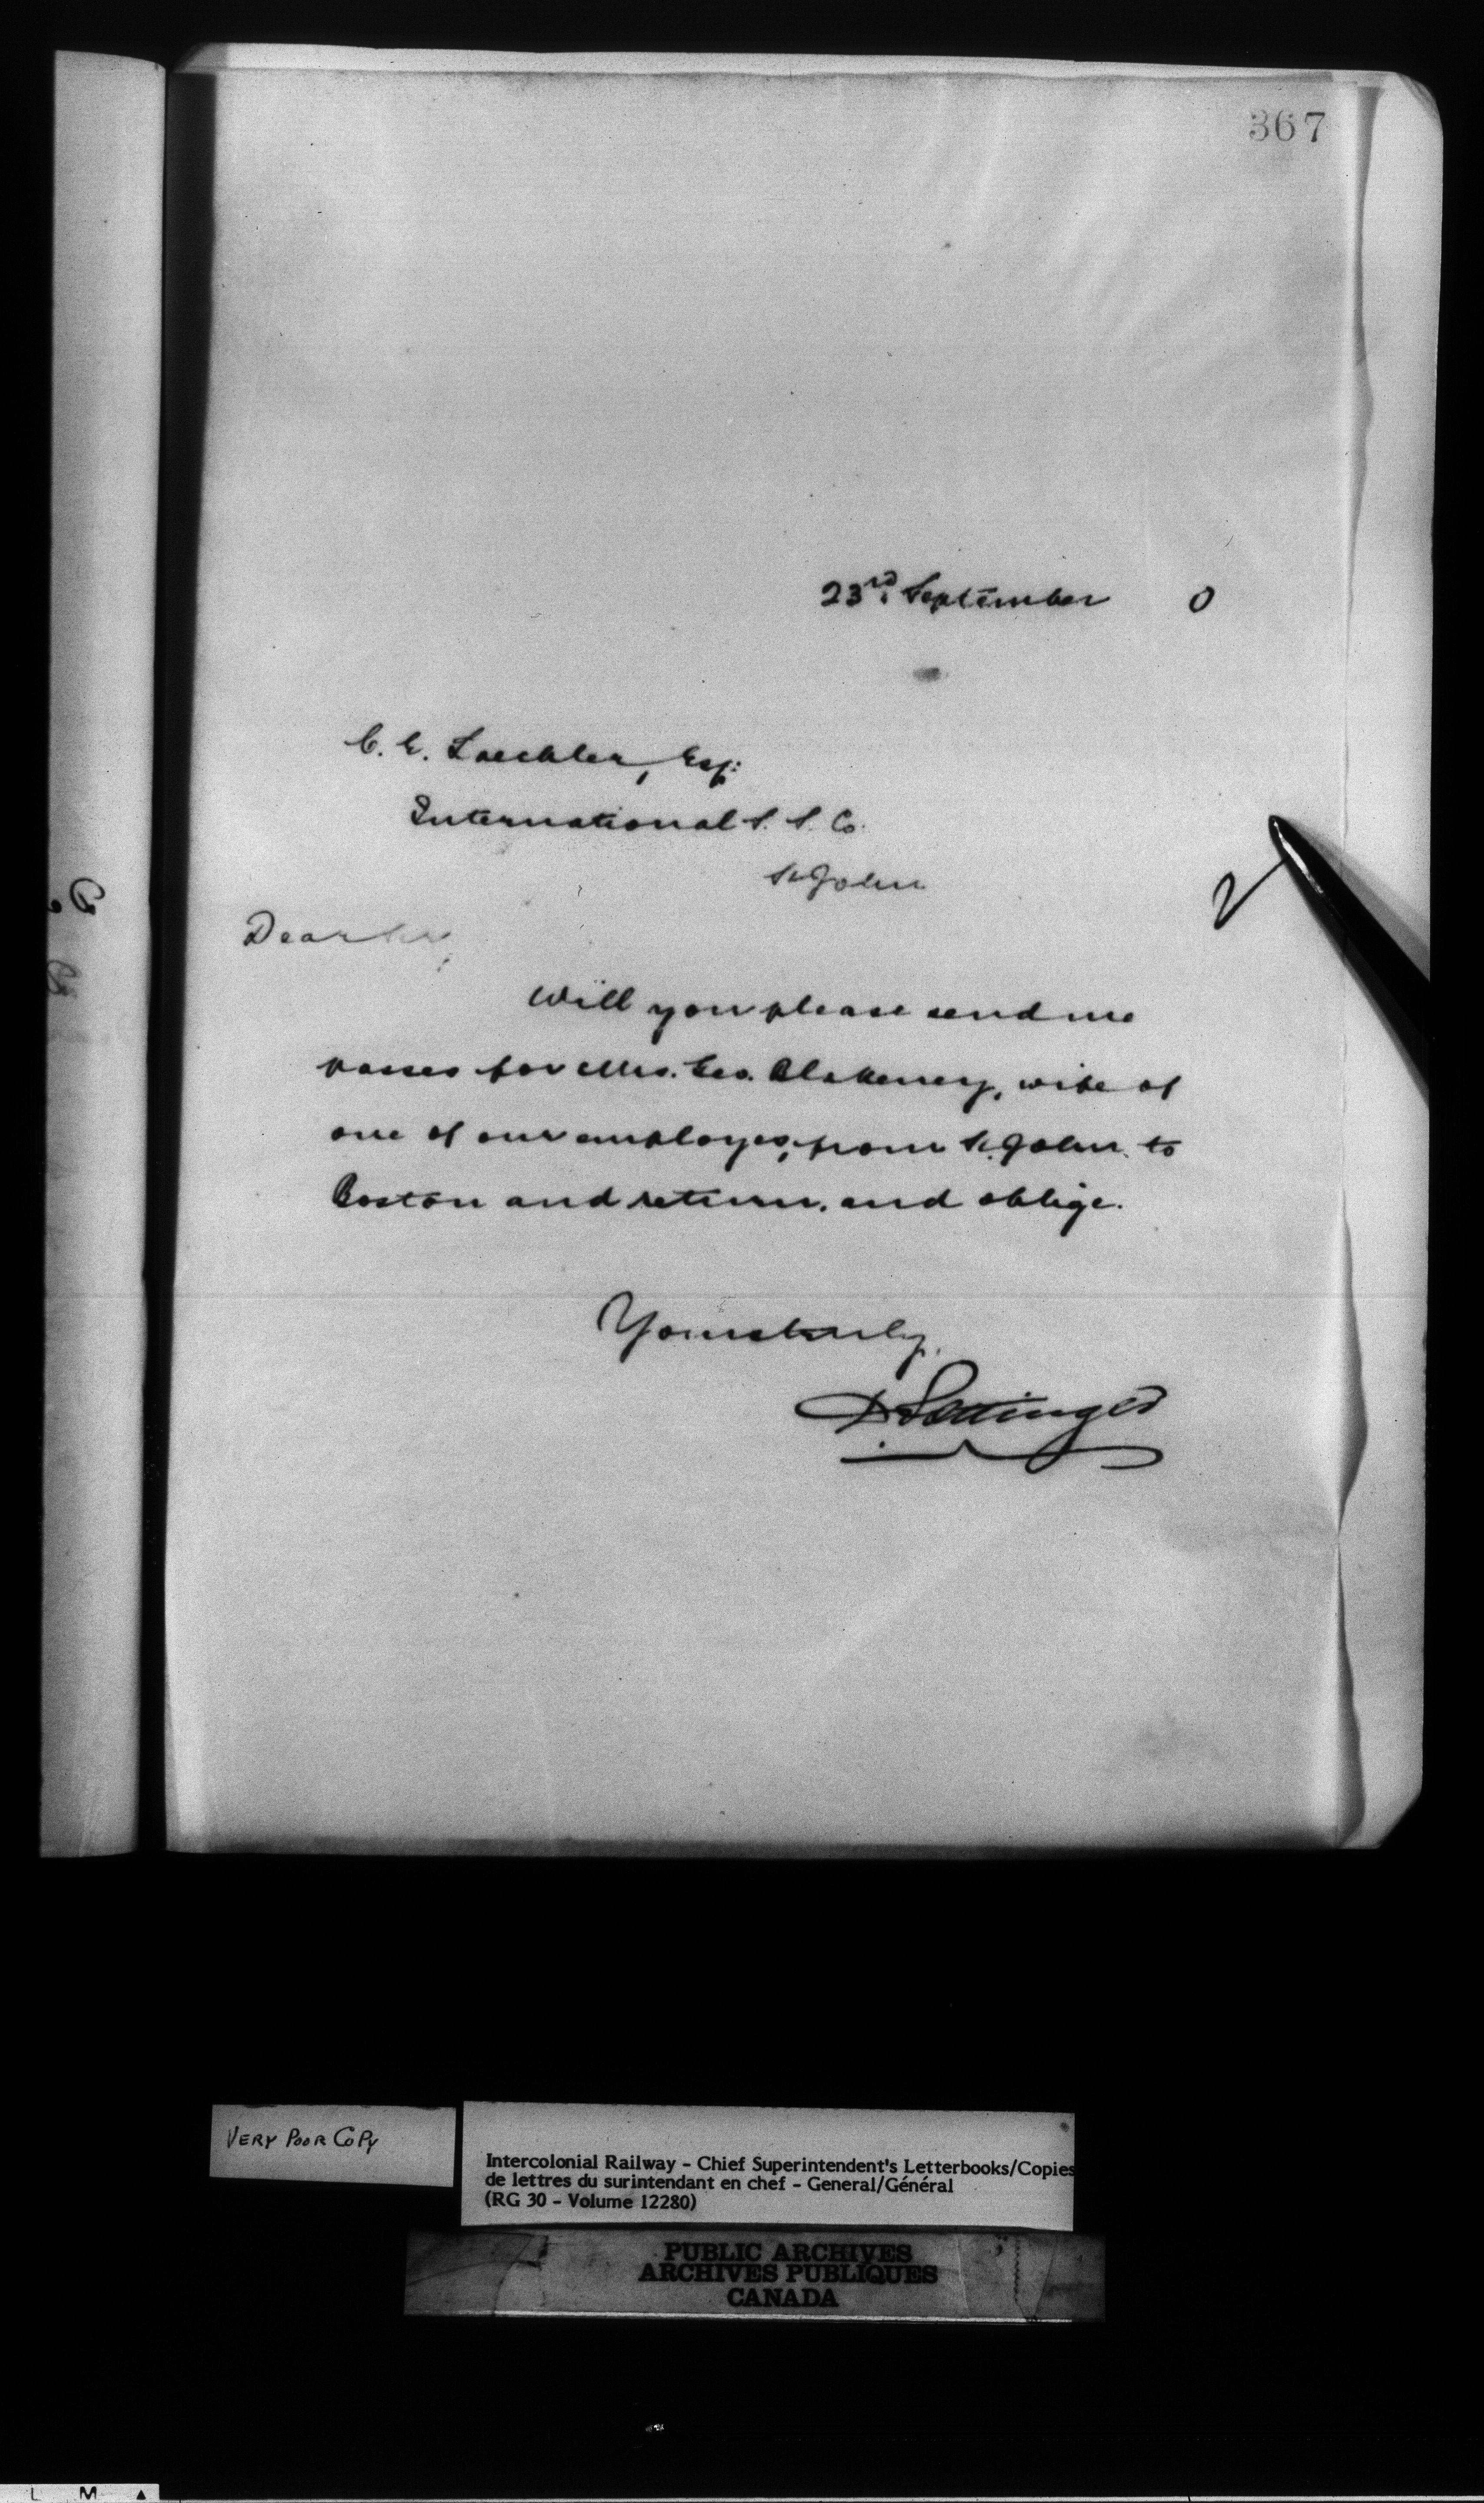 367
23rd. September 0
C. E. Laechler, Esq:
International S. S. Co.
St John
Dear Sir,
Will you please send me
passes for Mrs. Geo. Blakeney, wife of
one of our employes, from St. John to
Boston and return, and oblige.
Yours truly,
D. Pottinger
VERY POOR COPY
Intercolonial Railway - Chief Superintendent's Letterbooks/Copies
de lettres du surintendant en chef - General/Général
(RG 30 - Volume 12280)
PUBLIC ARCHIVES
ARCHIVES PUBLIQUES
CANADA